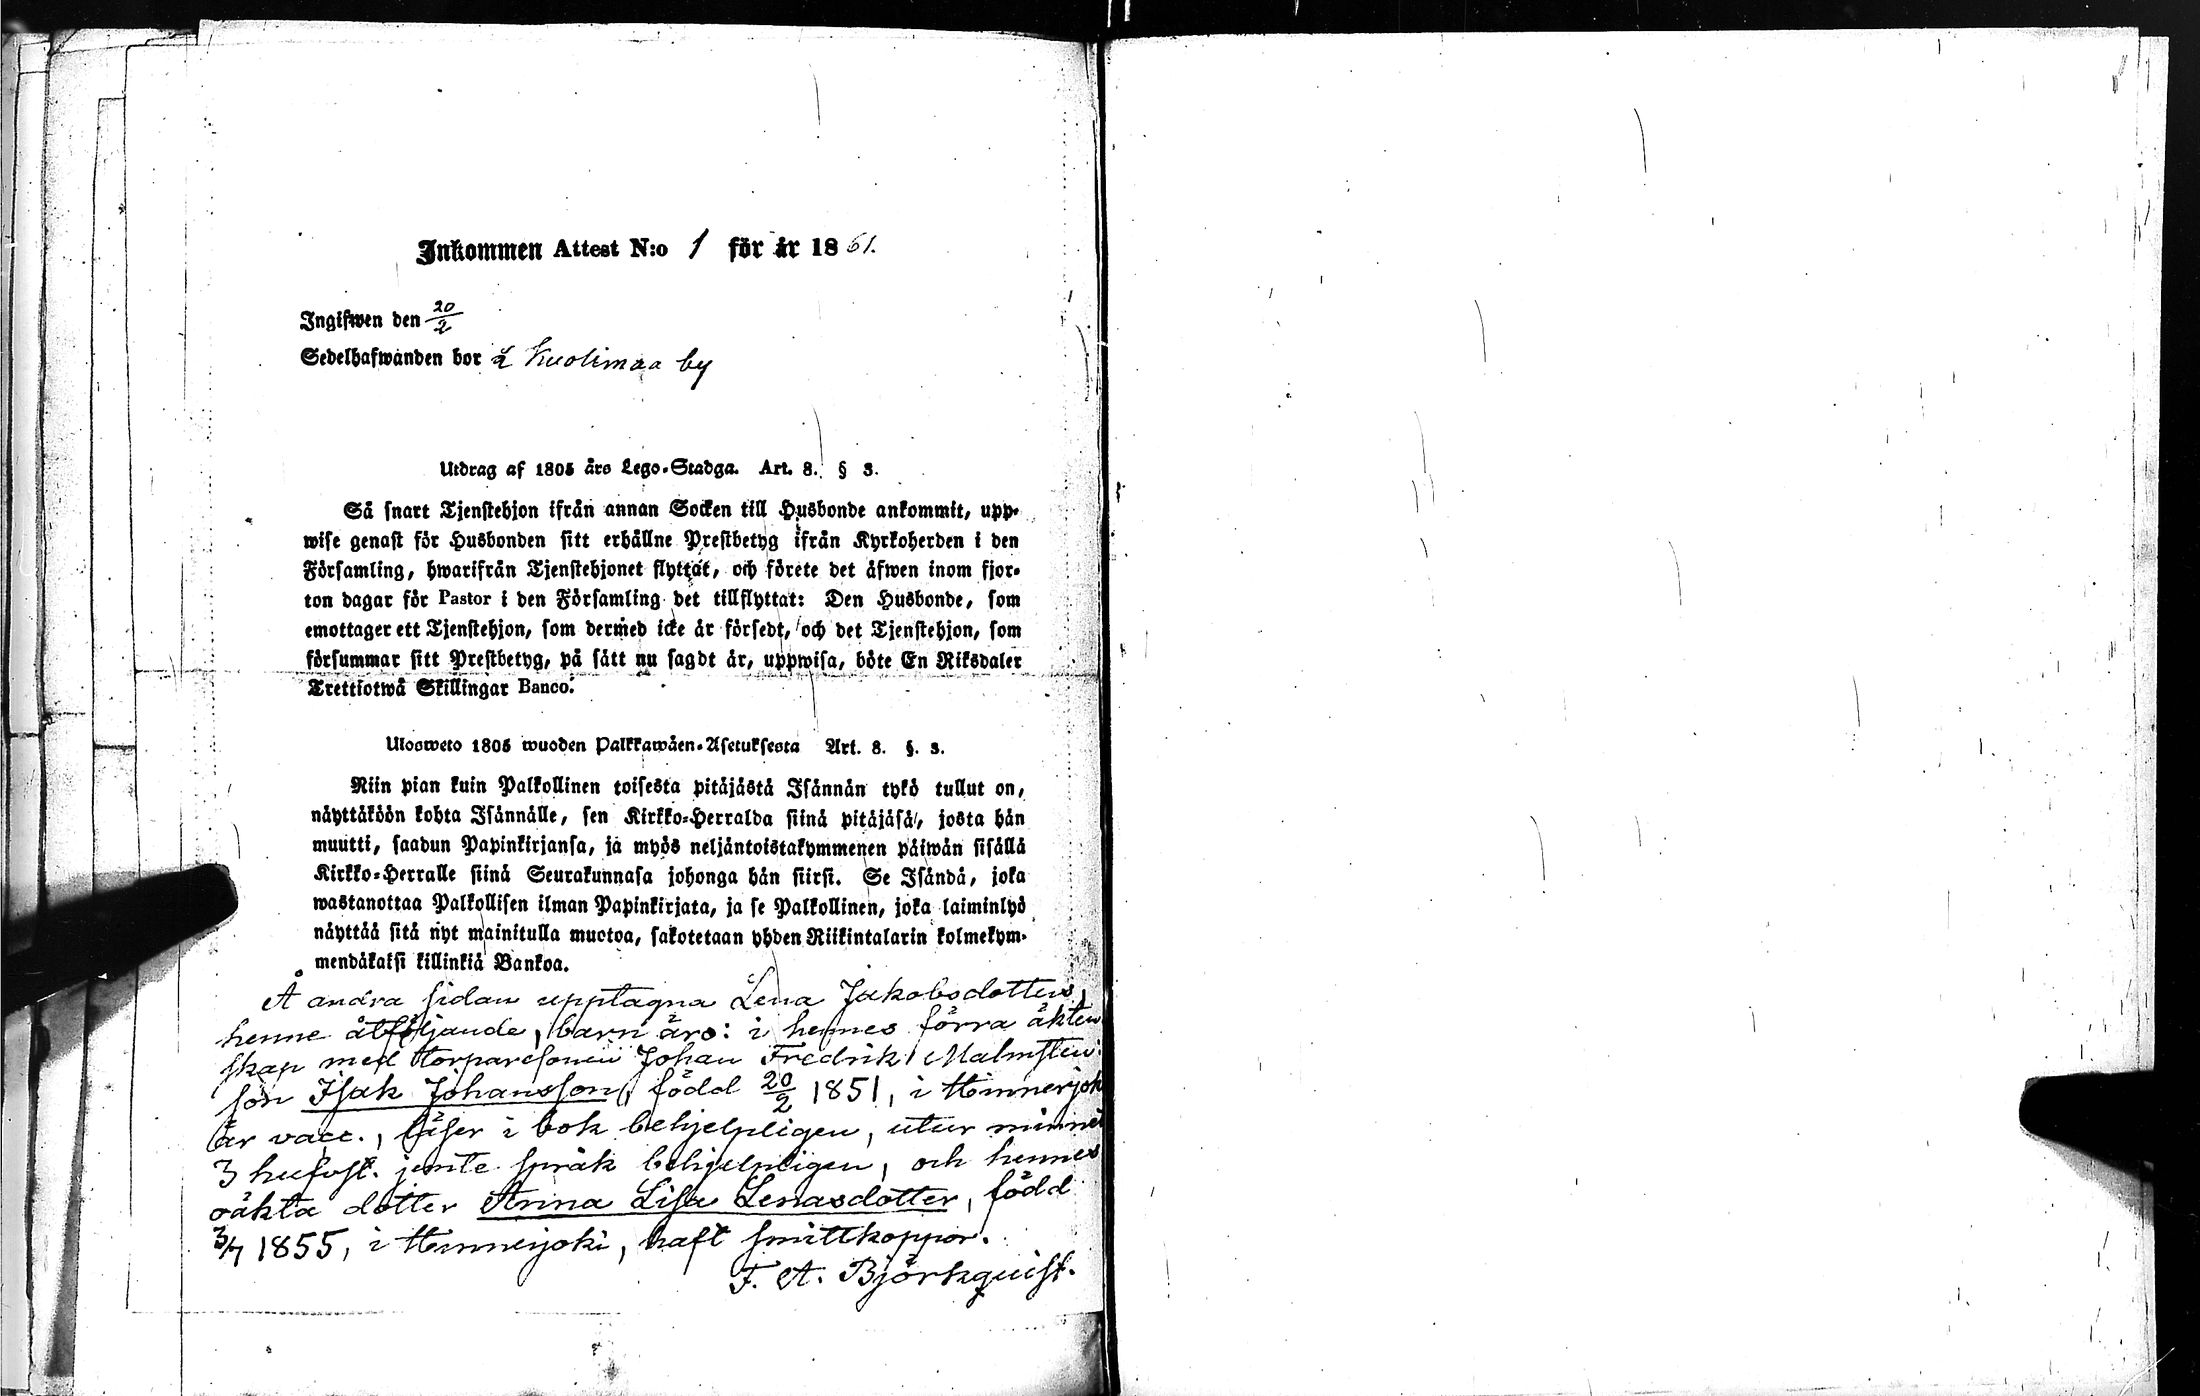 Inkommen Attest N:o 1 för år 1861.
Ingifwen den 20/2
Sedelhafwanden bor i Kuolimaa by
Utdrag af 1805 års Lego-Stadga. Art. 8. § 3.
Så snart Tjenstehjon ifrån annan Socken till Husbonde ankommit, upp-
wise genast för Husbonden sitt erhållne Prestbetyg ifrån Kyrkoherden i den
Församling, hwarifrån Tjenstehjonet flyttat, och förete det äfwen inom fjor-
ton dagar för Pastor i den Församling det tillflyttat: Den Husbonde, som
emottager ett Tjenstehjon, som dermed icke är försedt, och det Tjenstehjon, som
försummar sitt Prestbetyg, på sätt nu sagdt är, uppwisa, böte En Riksdaler
Trettiotwå Skillingar Banco.
Ulosweto 1805 wuoden Palkkawäen-Asetuksesta Art. 8. §. 3.
Niin pian kuin Palkollinen toisesta pitäjästä Isännän tykö tullut on,
näyttäköön kohta Isännälle, sen Kirkko-Herralda siinä pitäjäsä, josta hän
muutti, saadun Papinkirjansa, ja myös neljäntoistakymmenen päiwän sisällä
Kirkko-Herralle siinä Seurakunnasa johonga hän siirsi. Se Isändä, joka
wastanottaa Palkollisen ilman Papinkirjata, ja se Palkollinen, joka laiminlyö
näyttää sitä nyt mainitulla muotoa, sakotetaan yhden Riikintalarin kolmekym-
mendäkaksi killinkiä Bankoa.
Å andra sidan upptagna Lena Jakobsdotters,
henne åtföljande, barn äro: i hennes förra äkten
skap med torparesonen Johan Fredrik Malmsten
son Isak Johansson, född 20/2 1851, i Hinnerjok
är vacc., läser i bok behjelpligen, utur minnet
3 hufvst. jemte språk behjelpligen, och hennes
oäkta dotter Anna Lisa Lenasdotter, född
3/7 1855, i Hinnerjoki, haft smittkoppor.
F. A. Björkquist.